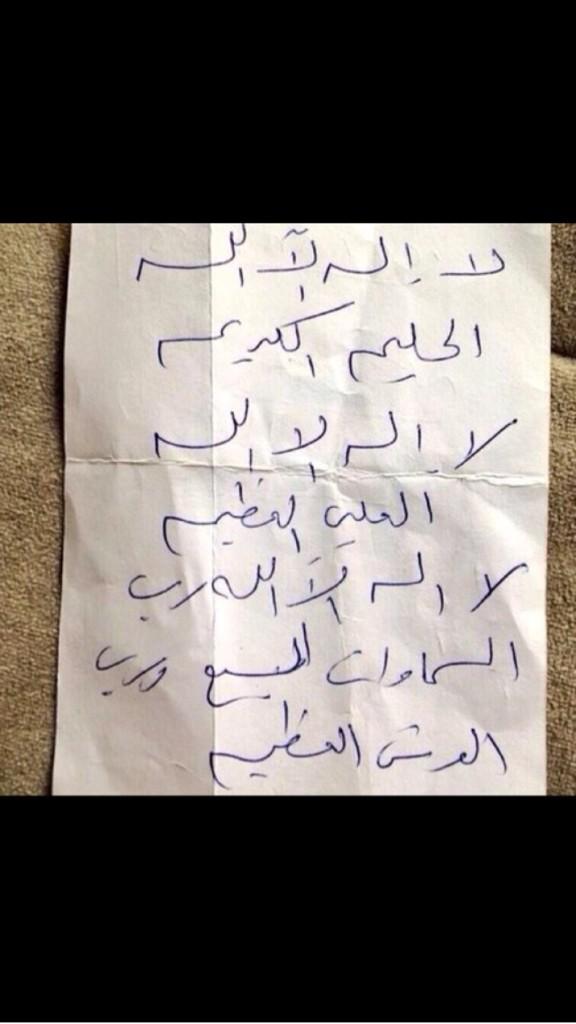 لا إله إلّا الله
الحليم الكريم
لا إله الا الله
العلي العظيم
لا اله الّا الله رب
السماوات السبع ورب
العرش العظيم